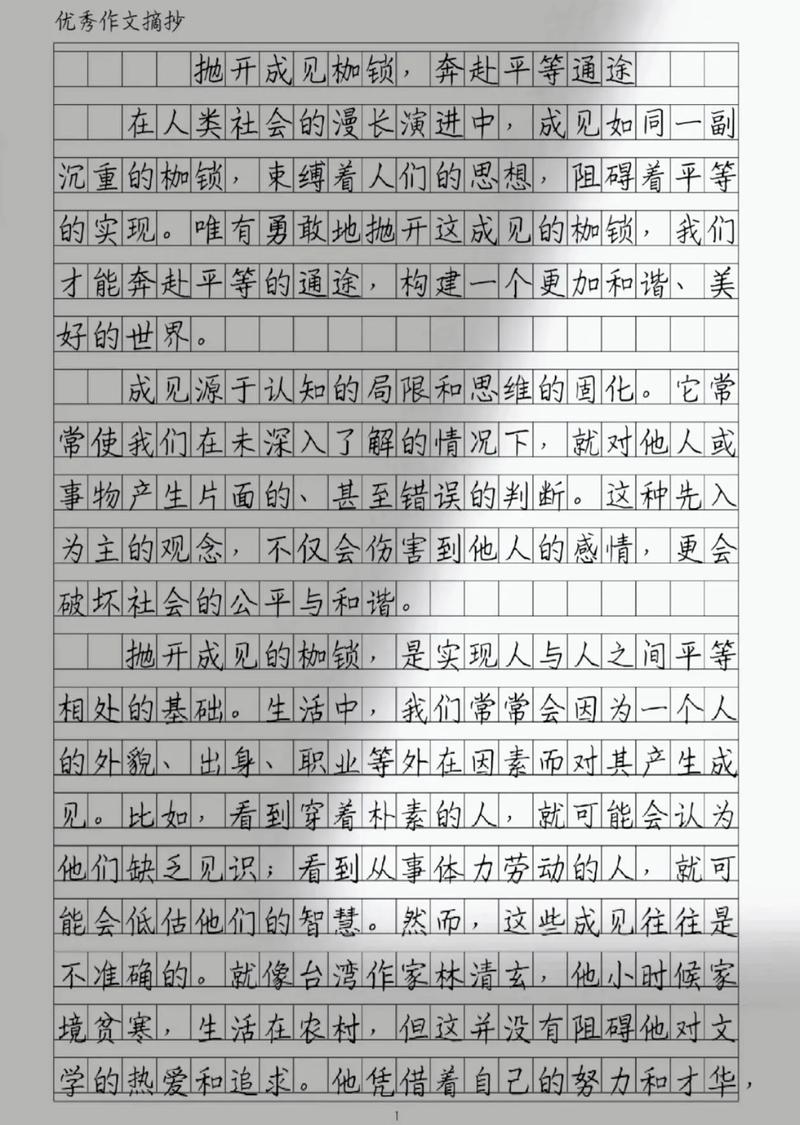 优秀作文摘抄
抛开成见枷锁，奔赴平等通途
在人类社会的漫长演进中，成见如同一副
沉重的枷锁，束缚着人们的思想，阻碍着平等
的实现。唯有勇敢地抛开这成见的枷锁，我们
才能奔赴平等的通途，构建一个更加和谐、美
好的世界。
成见源于认知的局限和思维的固化。它常
常使我们在未深入了解的情况下，就对他人或
事物产生片面的、甚至错误的判断。这种先入
为主的观念，不仅会伤害到他人的感情，更会
破坏社会的公平与和谐。
抛开成见的枷锁，是实现人与人之间平等
相处的基础。生活中，我们常常会因为一个人
的外貌、出身、职业等外在因素而对其产生成
见。比如，看到穿着朴素的人，就可能会认为
他们缺乏见识；看到从事体力劳动的人，就可
能会低估他们的智慧。然而，这些成见往往是
不准确的。就像台湾作家林清玄，他小时候家
境贫寒，生活在农村，但这并没有阻碍他对文
学的热爱和追求。他凭借着自己的努力和才华，
1